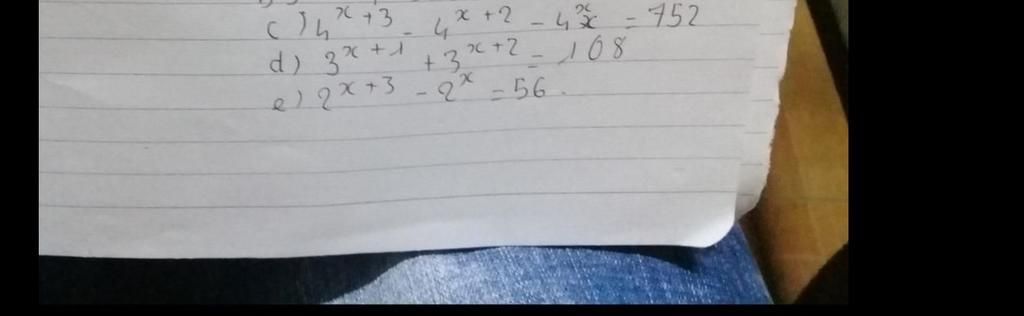 c) 4^{x+3} - 4^{x+2} - 4^{x} = 752
d) 3^{x+1} + 3^{x+2} = 108
e) 2^{x+3} - 2^{x} = 56.